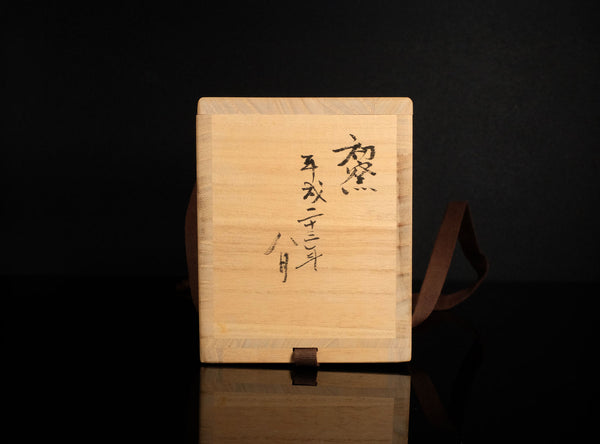 初窯
平成二十二年
八月